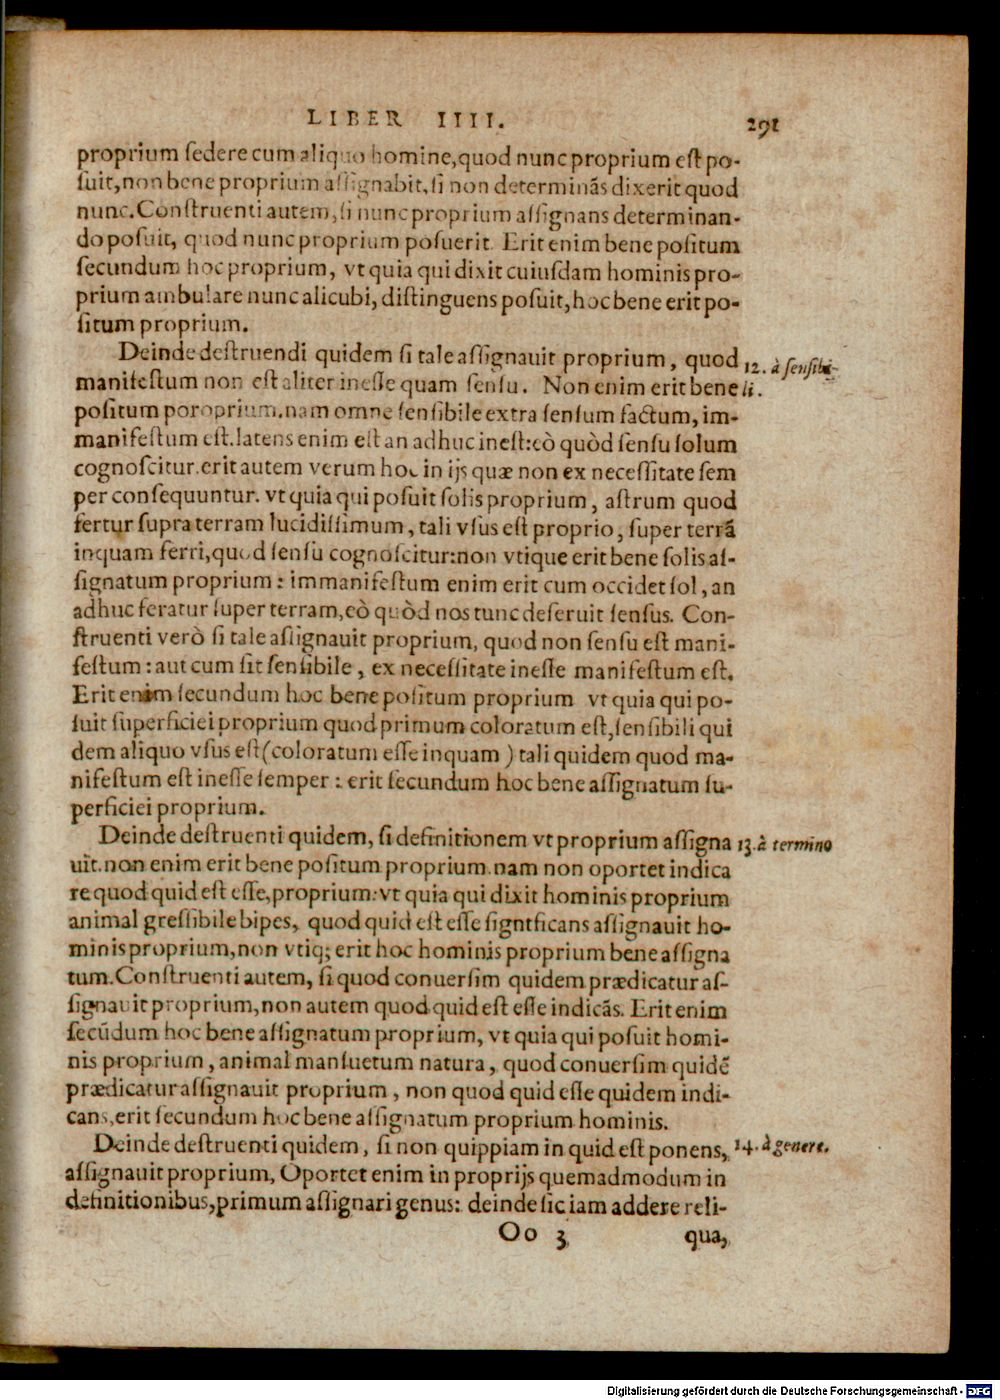 LIBER IIII. 291
proprium ſedere cum aliquo homine, quod nunc proprium eſt po-
ſuit, non bene proprium aſſignabit, ſi non determinãs dixerit quod
nunc. Conſtruenti autem, ſi nunc proprium aſſignans determinan-
do poſuit, quod nunc proprium poſuerit. Erit enim bene poſitum
ſecundum hoc proprium, vt quia qui dixit cuiuſdam hominis pro-
prium ambulare nunc alicubi, diſtinguens poſuit, hoc bene erit po-
ſitum proprium.
Deinde deſtruendi quidem ſi tale aſſignauit proprium, quod 12. à ſenſibi-
manifeſtum non eſt aliter ineſſe quam ſenſu. Non enim erit bene li.
poſitum poroprium. nam omne ſenſibile extra ſenſum factum, im-
manifeſtum eſt. latens enim eſt an adhuc ineſt: eò quòd ſenſu ſolum
cognoſcitur. erit autem verum hoc in ijs quæ non ex neceſſitate ſem
per conſequuntur. vt quia qui poſuit ſolis proprium, aſtrum quod
fertur ſupra terram lucidiſſimum, tali vſus eſt proprio, ſuper terrã
inquam ferri, quod ſenſu cognoſcitur: non vtique erit bene ſolis aſ-
ſignatum proprium: immanifeſtum enim erit cum occidet ſol, an
adhuc feratur ſuper terram, eò quòd nos tunc deſeruit ſenſus. Con-
ſtruenti verò ſi tale aſſignauit proprium, quod non ſenſu eſt mani-
feſtum: aut cum ſit ſenſibile, ex neceſſitate ineſſe manifeſtum eſt.
Erit enim ſecundum hoc bene poſitum proprium vt quia qui po-
ſuit ſuperficiei proprium quod primum coloratum eſt, ſenſibili qui
dem aliquo vſus eſt (coloratum eſſe inquam) tali quidem quod ma-
nifeſtum eſt ineſſe ſemper: erit ſecundum hoc bene aſſignatum ſu-
perficiei proprium.
Deinde deſtruenti quidem, ſi definitionem vt proprium aſſigna 13. à termino
uit. non enim erit bene poſitum proprium. nam non oportet indica
re quod quid eſt eſſe, proprium: vt quia qui dixit hominis proprium
animal greſſibile bipes, quod quid eſt eſſe signtficans aſſignauit ho-
minis proprium, non vtiq; erit hoc hominis proprium bene aſſigna
tum. Conſtruenti autem, ſi quod conuerſim quidem prædicatur aſ-
ſignauit proprium, non autem quod quid eſt eſſe indicãs. Erit enim
ſecũdum hoc bene aſſignatum proprium, vt quia qui poſuit homi-
nis proprium, animal manſuetum natura, quod conuerſim quidẽ
prædicatur aſſignauit proprium, non quod quid eſſe quidem indi-
cans, erit ſecundum hoc bene aſſignatum proprium hominis.
Deinde deſtruenti quidem, ſi non quippiam in quid eſt ponens, 14. à genere.
aſſignauit proprium, Oportet enim in proprijs quemadmodum in
definitionibus, primum aſſignari genus: deinde ſic iam addere reli-
Oo 3 qua,
Digitalisierung gefördert durch die Deutsche Forschungsgemeinschaft - DFG